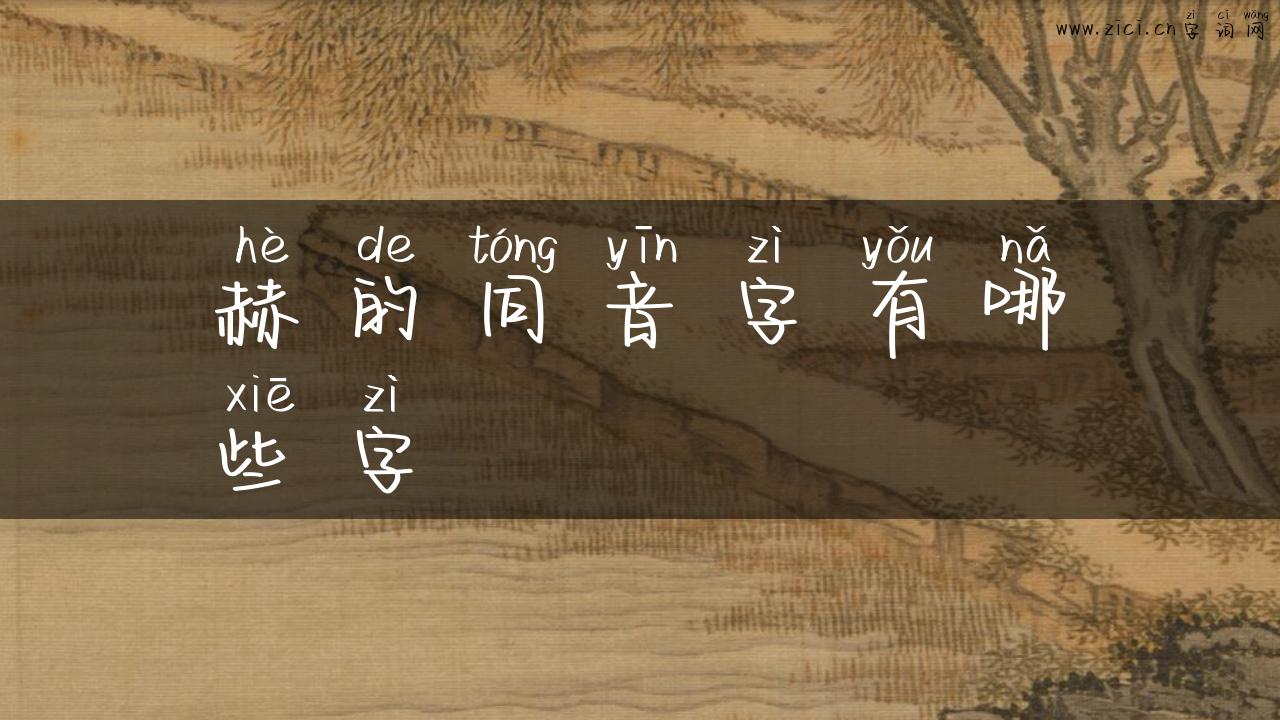 zì cí wǎng
www.zici.cn 字词网
hè de tóng yīn zì yǒu nǎ
赫的同音字有哪
xiē zì
些字